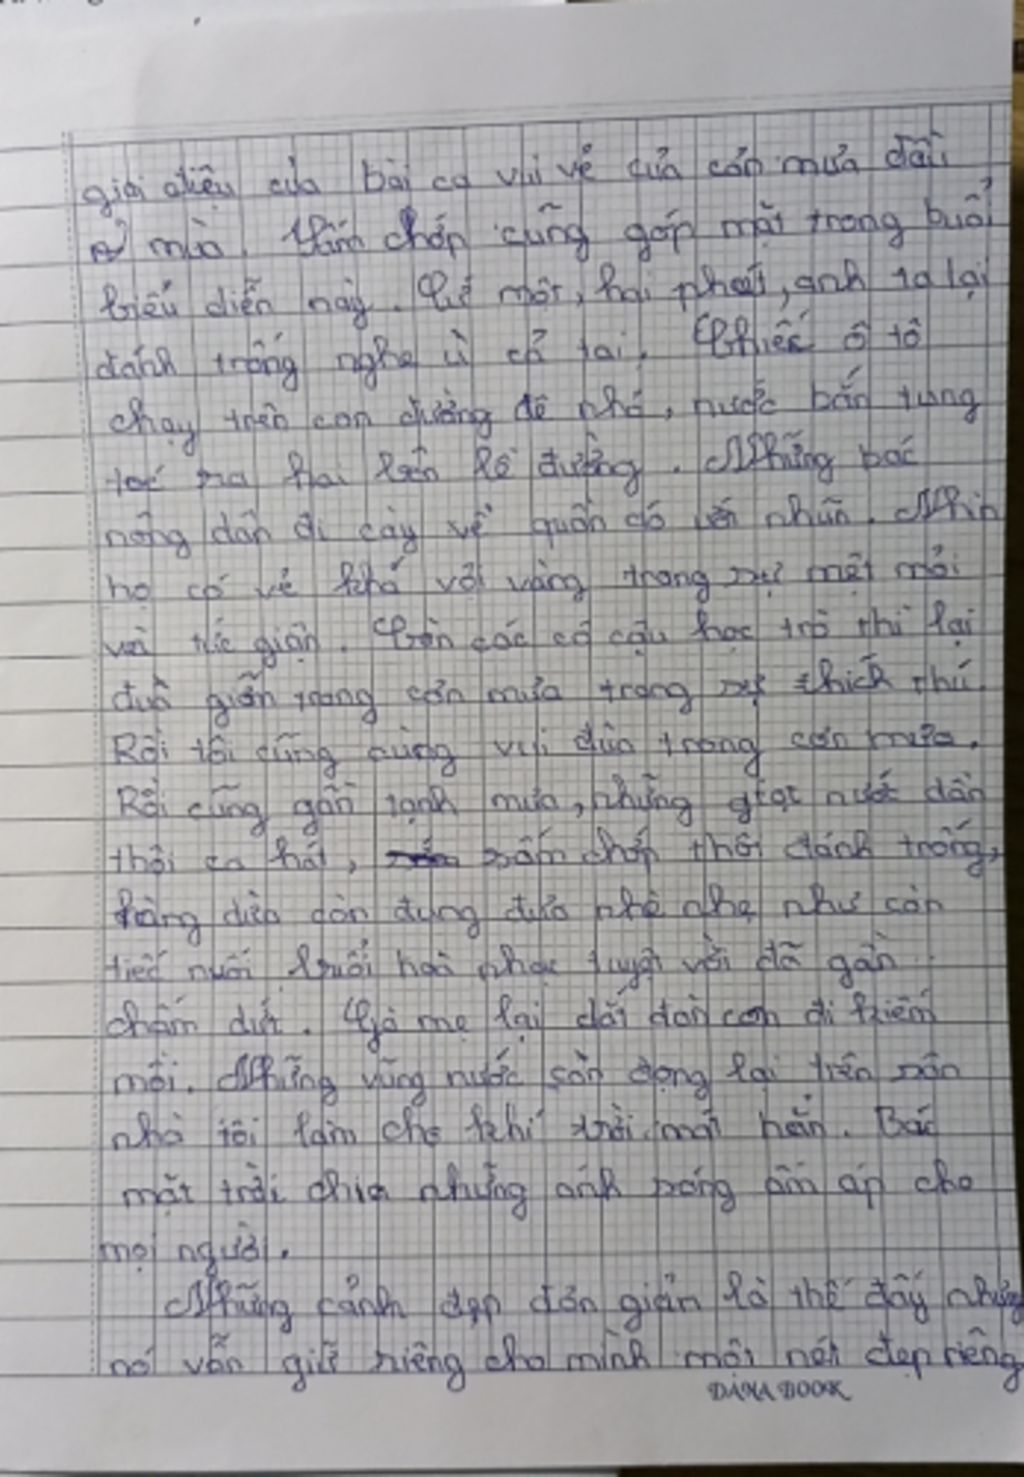 giai điệu của bài ca vui vẻ của cơn mưa đầu
mùa. Sấm chớp cũng góp mặt trong buổi
biểu diễn này. Cứ một, hai phút, anh ta lại
đánh trống nghe ù cả tai. Chiếc ô tô
chạy trên con đường đê nhỏ, nước bắn tung
toé ra hai bên lề đường. Những bác
nông dân đi cày về quần áo nhũn. Nhìn
họ có vẻ khá vội vàng trong sự mệt mỏi
và tức giận. Còn các cô cậu học trò thì lại
đuà giỡn trong cơn mưa trong sự thích thú.
Rồi tôi cũng cùng vui đùa trong cơn mưa.
Rồi cũng gần tạnh mưa, những giọt nước dần
thôi ca hát, sấm chớp thôi đánh trống,
hàng dừa còn đung đưa nhè nhẹ như còn
tiếc nuối buổi hoà nhạc tuyệt vời đã gần
chấm dứt. Gà mẹ lại dắt đàn con đi kiếm
mồi. Những vũng nước còn đọng lại trên sân
nhà tôi làm cho khí trời mát hẳn. Bác
mặt trời chia những ánh nóng ấm áp cho
mọi người.
Những cảnh đẹp đơn giản là thế đấy nhưng
nó vẫn giữ riêng cho mình một nét đẹp riêng
DANA BOOK